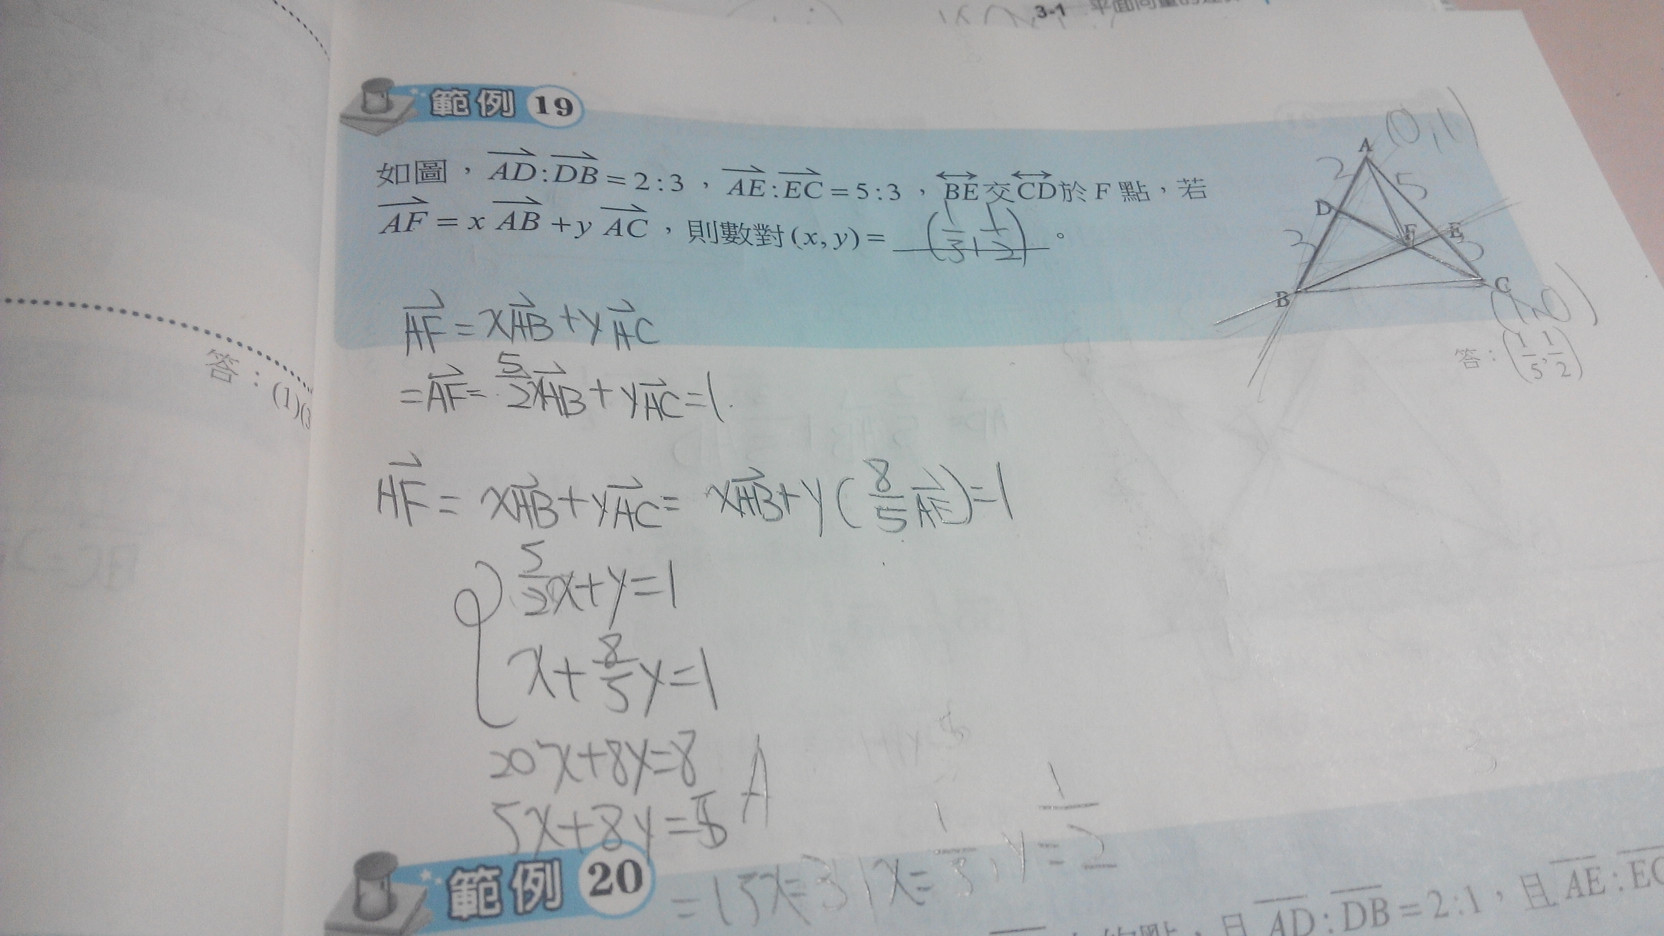 3-1 平面向量的
範例 19
如圖，AD:DB=2:3，AE:EC=5:3，BE交CD於F點，若
AF=xAB+yAC，則數對(x,y)=(1/3,1/2)。
A (0,1)
2
5
D
3
F
E
3
B
C
(1,0)
答：(1/5,1/2)
答：(1)(3
AF=xAB+yAC
=AF=5/2xAB+yAC=1.
AF=xAB+yAC=xAB+y(8/5AE)=1
5/2x+y=1
x+8/5y=1
20x+8y=8
5x+8y=5
=15x=3 x=1/3,y=1/2
範例 20
AD:DB=2:1，且AE:EC